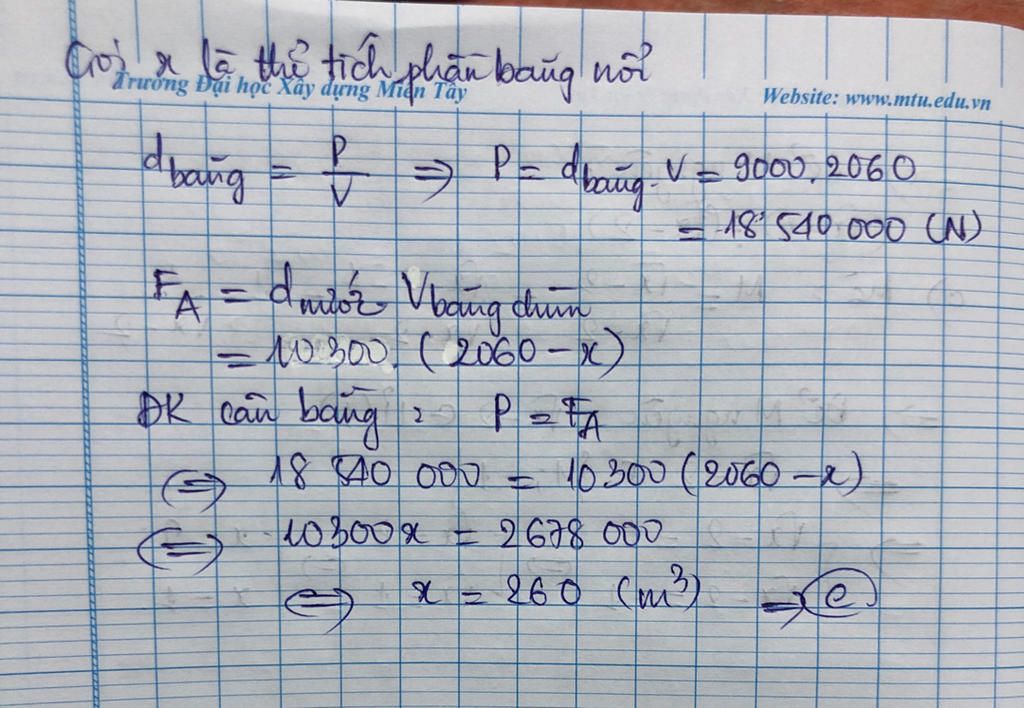 Gọi x là thể tích phần băng nổi
Trường Đại học Xây dựng Miền Tây
Website: www.mtu.edu.vn
d băng = P/V ⇒ P = d băng. V = 9000. 2060
= 18 540 000 (N)
F_A = d nước. V băng chìm
= 10 300. (2060 - x)
ĐK cân bằng: P = F_A
⇔ 18 540 000 = 10 300 (2060 - x)
⇔ 10300x = 2678 000
⇔ x = 260 (m³) ⇒ C